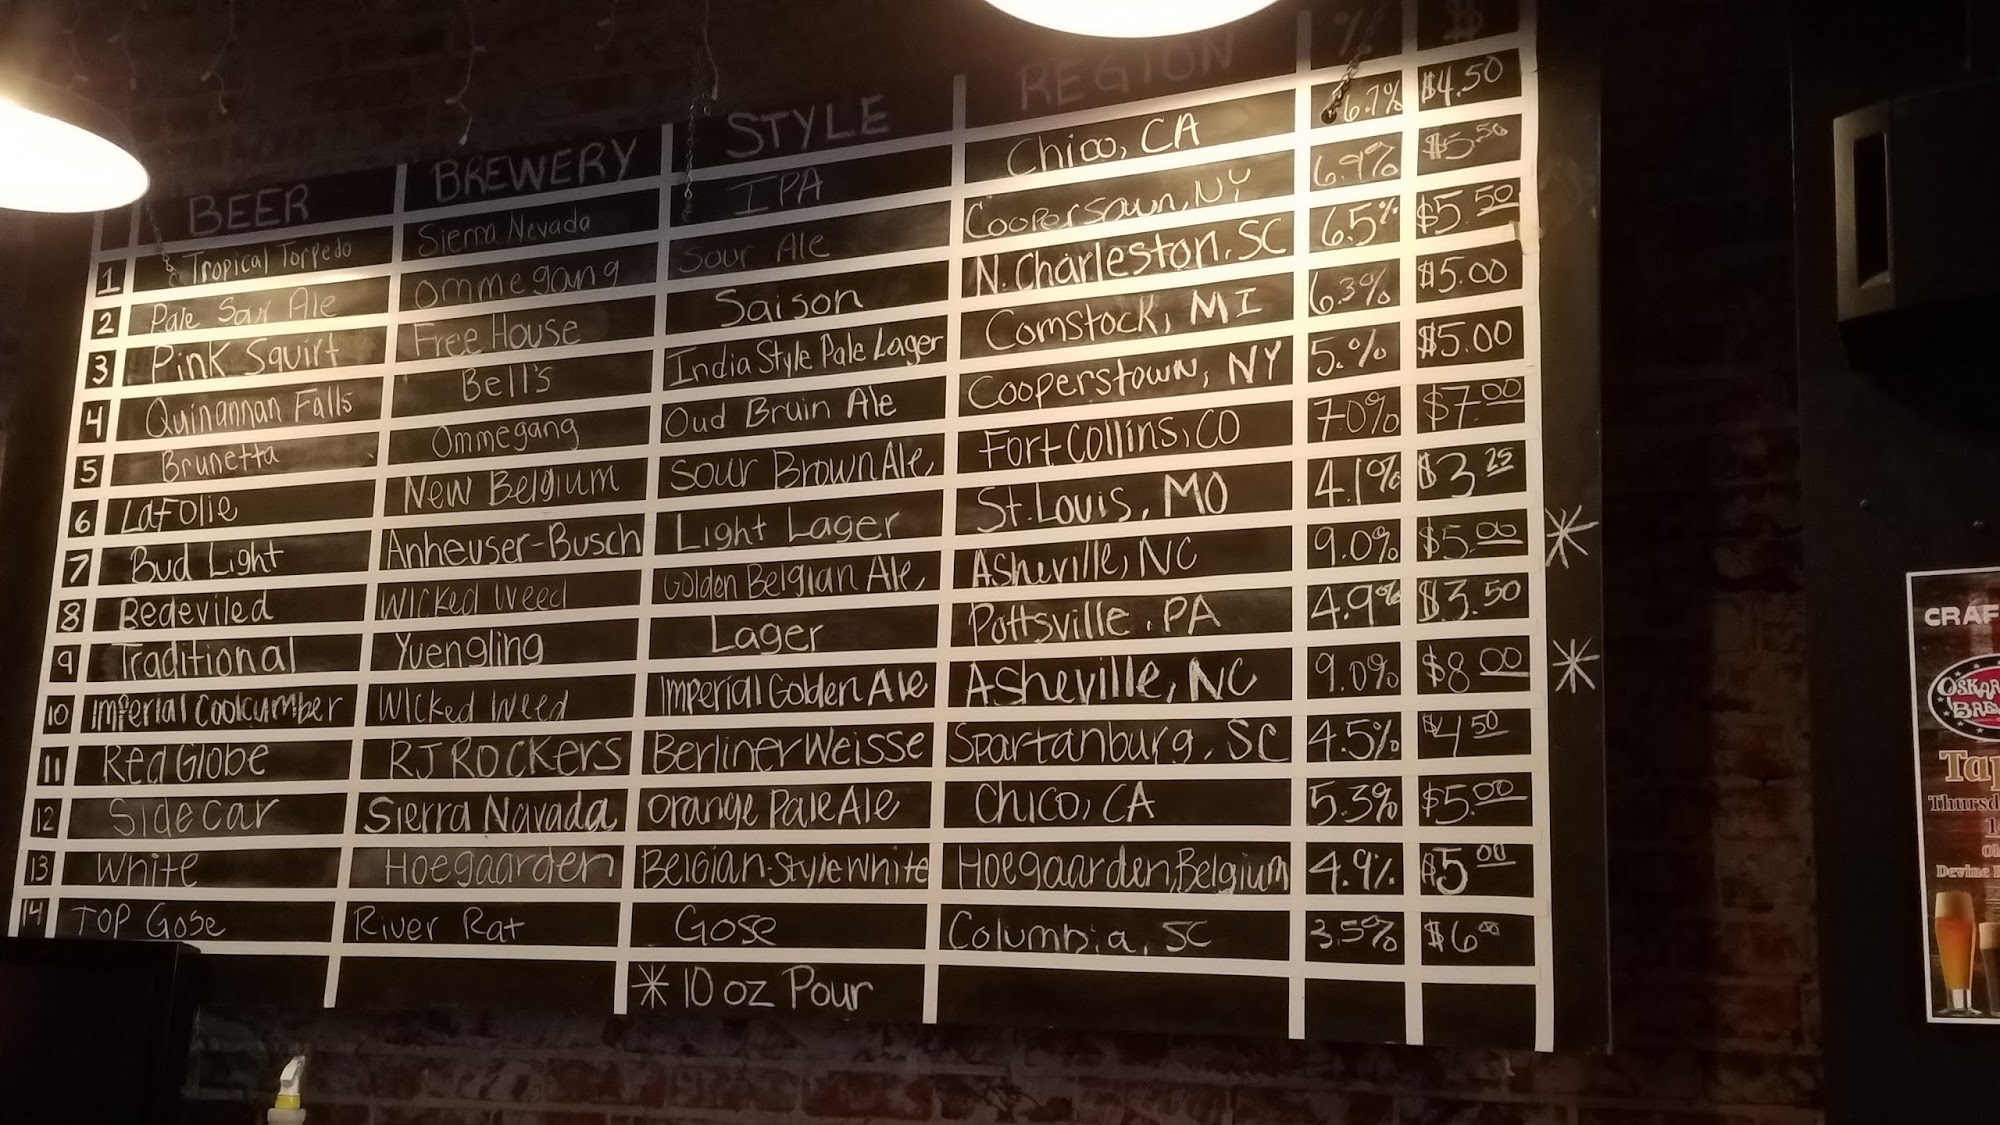 BEER BREWERY STYLE REGION % $
1 Tropical Torpedo Sierra Nevada IPA Chico, CA 6.7% $4.50
2 Pale Sour Ale Ommegang Sour Ale Cooperstown, NY 6.9% $5.50
3 Pink Squirt Free House Saison N. Charleston, SC 6.5% $5.50
4 Quinannan Falls Bell's India Style Pale Lager Comstock, MI 6.3% $5.00
5 Brunetta Ommegang Oud Bruin Ale Cooperstown, NY 5.% $5.00
6 LaFolie New Belgium Sour Brown Ale, Fort Collins, CO 7.0% $7.00
7 Bud Light Anheuser-Busch Light Lager St. Louis, MO 4.1% $3.25
8 Bedeviled Wicked Weed Golden Belgian Ale, Asheville, NC 9.0% $5.00 *
9 Traditional Yuengling Lager Pottsville, PA 4.9% $3.50
10 Imperial Coolcumber Wicked Weed Imperial Golden Ale Asheville, NC 9.0% $8.00 *
11 Red Globe RJ Rockers Berliner Weisse Spartanburg, SC 4.5% $4.50
12 Sidecar Sierra Navada Orange Pale Ale Chico, CA 5.3% $5.00
13 White Hoegaarden Belgian-Style White Hoegaarden, Belgium 4.9% $5.00
14 Top Gose River Rat Gose Columbia, SC 3.5% $6.00
* 10 oz Pour
CRAF
OSKAR
Tap
Thursd
Devine